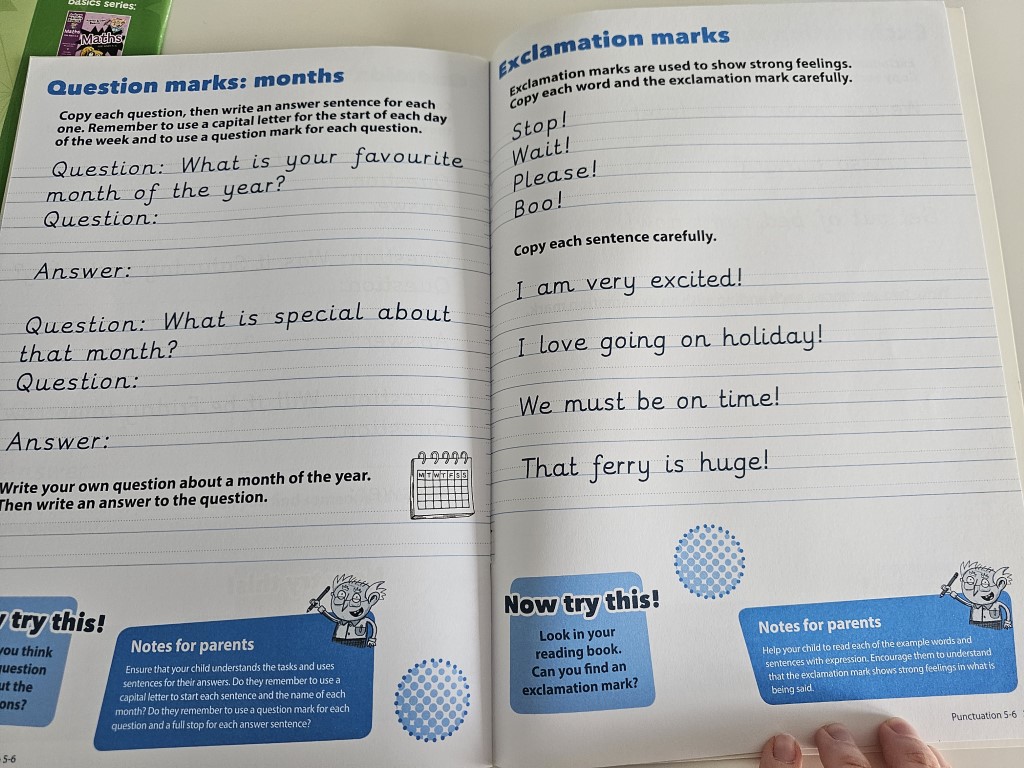 Basics series:
Maths
Maths
Question marks: months
Copy each question, then write an answer sentence for each
one. Remember to use a capital letter for the start of each day
of the week and to use a question mark for each question.
Question: What is your favourite
month of the year?
Question:
Answer:
Question: What is special about
that month?
Question:
Answer:
Write your own question about a month of the year.
Then write an answer to the question.
M T W T F S S
try this!
you think
question
ut the
ons?
Notes for parents
Ensure that your child understands the tasks and uses
sentences for their answers. Do they remember to use a
capital letter to start each sentence and the name of each
month? Do they remember to use a question mark for each
question and a full stop for each answer sentence?
5-6
Exclamation marks
Exclamation marks are used to show strong feelings.
Copy each word and the exclamation mark carefully.
Stop!
Wait!
Please!
Boo!
Copy each sentence carefully.
I am very excited!
I love going on holiday!
We must be on time!
That ferry is huge!
Now try this!
Look in your
reading book.
Can you find an
exclamation mark?
Notes for parents
Help your child to read each of the example words and
sentences with expression. Encourage them to understand
that the exclamation mark shows strong feelings in what is
being said.
Punctuation 5-6